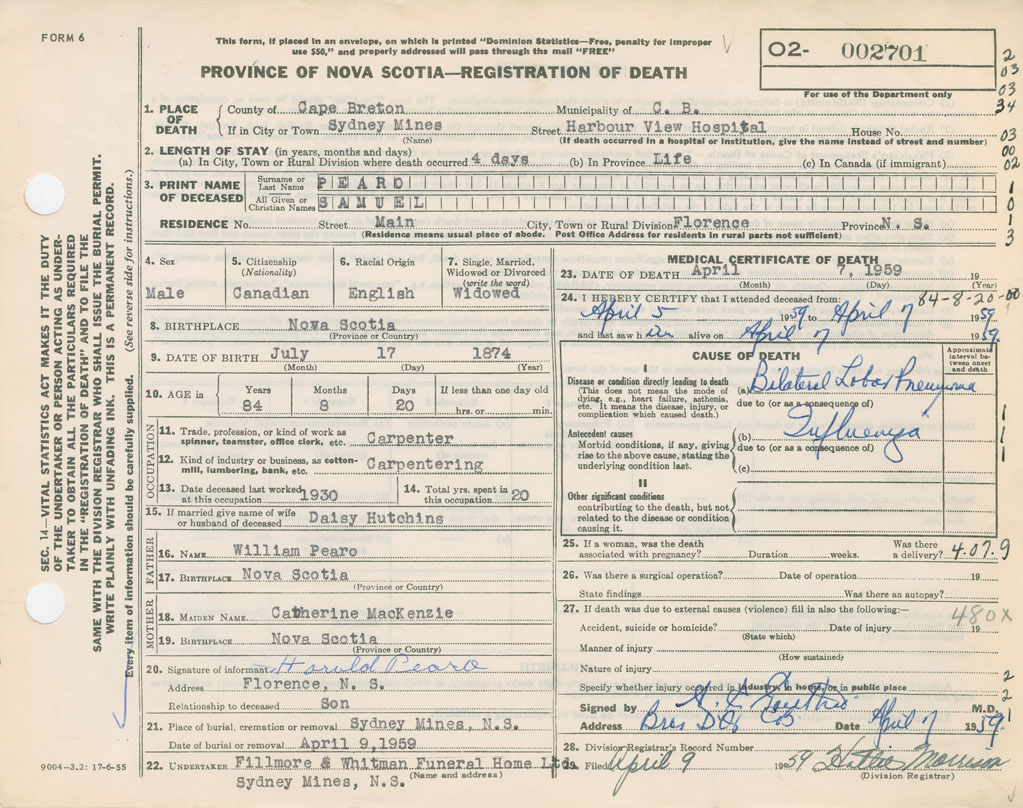 FORM 6
This form, if placed in an envelope, on which is printed "Dominion Statistics—Free, penalty for improper
use $50," and properly addressed will pass through the mail "FREE"
PROVINCE OF NOVA SCOTIA—REGISTRATION OF DEATH
O2- 002701
For use of the Department only
2
03
03
34
03
00
02
1
0
1
3
1. PLACE OF DEATH
County of Cape Breton Municipality of C. B.
If in City or Town Sydney Mines Street Harbour View Hospital House No.
(Name) (If death occurred in a hospital or institution, give the name instead of street and number)
2. LENGTH OF STAY (in years, months and days)
(a) In City, Town or Rural Division where death occurred 4 days (b) In Province Life (c) In Canada (if immigrant)
3. PRINT NAME OF DECEASED
Surname or Last Name PEARO
All Given or Christian Names SAMUEL
RESIDENCE No. Street Main City, Town or Rural Division Florence Province N. S.
(Residence means usual place of abode. Post Office Address for residents in rural parts not sufficient)
4. Sex
Male
5. Citizenship
(Nationality)
Canadian
6. Racial Origin
English
7. Single, Married,
Widowed or Divorced
(write the word)
Widowed
8. BIRTHPLACE Nova Scotia
(Province or Country)
9. DATE OF BIRTH July 17 1874
(Month) (Day) (Year)
10. AGE in
Years Months Days If less than one day old
84 8 20 hrs. or min.
OCCUPATION
11. Trade, profession, or kind of work as
spinner, teamster, office clerk, etc. Carpenter
12. Kind of industry or business, as cotton-
mill, lumbering, bank, etc. Carpentering
13. Date deceased last worked
at this occupation 1930
14. Total yrs. spent in
this occupation 20
15. If married give name of wife
or husband of deceased Daisy Hutchins
FATHER
16. NAME William Pearo
17. BIRTHPLACE Nova Scotia
(Province or Country)
MOTHER
18. MAIDEN NAME Catherine MacKenzie
19. BIRTHPLACE Nova Scotia
(Province or Country)
20. Signature of informant Harold Pearo
Address Florence, N. S.
Relationship to deceased Son
21. Place of burial, cremation or removal Sydney Mines, N.S.
Date of burial or removal April 9,1959
22. UNDERTAKER Fillmore & Whitman Funeral Home Ltd.
(Name and address)
Sydney Mines, N.S.
MEDICAL CERTIFICATE OF DEATH
23. DATE OF DEATH April 7, 1959 19
(Month) (Day) (Year)
84-8-20-00
24. I HEREBY CERTIFY that I attended deceased from:
April 5 1959 to April 7 1959
and last saw h im alive on April 7 1959.
CAUSE OF DEATH
Approximate interval be-
tween onset and death
I
Disease or condition directly leading to death
(This does not mean the mode of
dying, e.g., heart failure, asthenia,
etc. It means the disease, injury, or
complication which caused death.)
(a) Bilateral Lobar Pneumonia
due to (or as a consequence of)
Antecedent causes
Morbid conditions, if any, giving
rise to the above cause, stating the
underlying condition last.
(b) Influenza
due to (or as a consequence of)
(c)
1
1
1
1
II
Other significant conditions
contributing to the death, but not
related to the disease or condition
causing it.
25. If a woman, was the death
associated with pregnancy? Duration weeks. Was there a delivery? 4.07.9
26. Was there a surgical operation? Date of operation 19
State findings Was there an autopsy?
27. If death was due to external causes (violence) fill in also the following:—
480X
Accident, suicide or homicide? Date of injury 19
(State which)
Manner of injury
(How sustained)
Nature of injury
Specify whether injury occurred in industry, in home, or in public place
2
2
1
Signed by M.D.
Address Date April 7 1959
28. Division Registrar's Record Number
29. Filed April 9 1959 Hattie Morrison
(Division Registrar)
SEC. 14—VITAL STATISTICS ACT MAKES IT THE DUTY
OF THE UNDERTAKER OR PERSON ACTING AS UNDER-
TAKER TO OBTAIN ALL THE PARTICULARS REQUIRED
IN THE "REGISTRATION OF DEATH" AND TO FILE THE
SAME WITH THE DIVISION REGISTRAR WHO SHALL ISSUE THE BURIAL PERMIT.
WRITE PLAINLY WITH UNFADING INK. THIS IS A PERMANENT RECORD.
Every item of information should be carefully supplied. (See reverse side for instructions.)
9004-3.2: 17-6-55